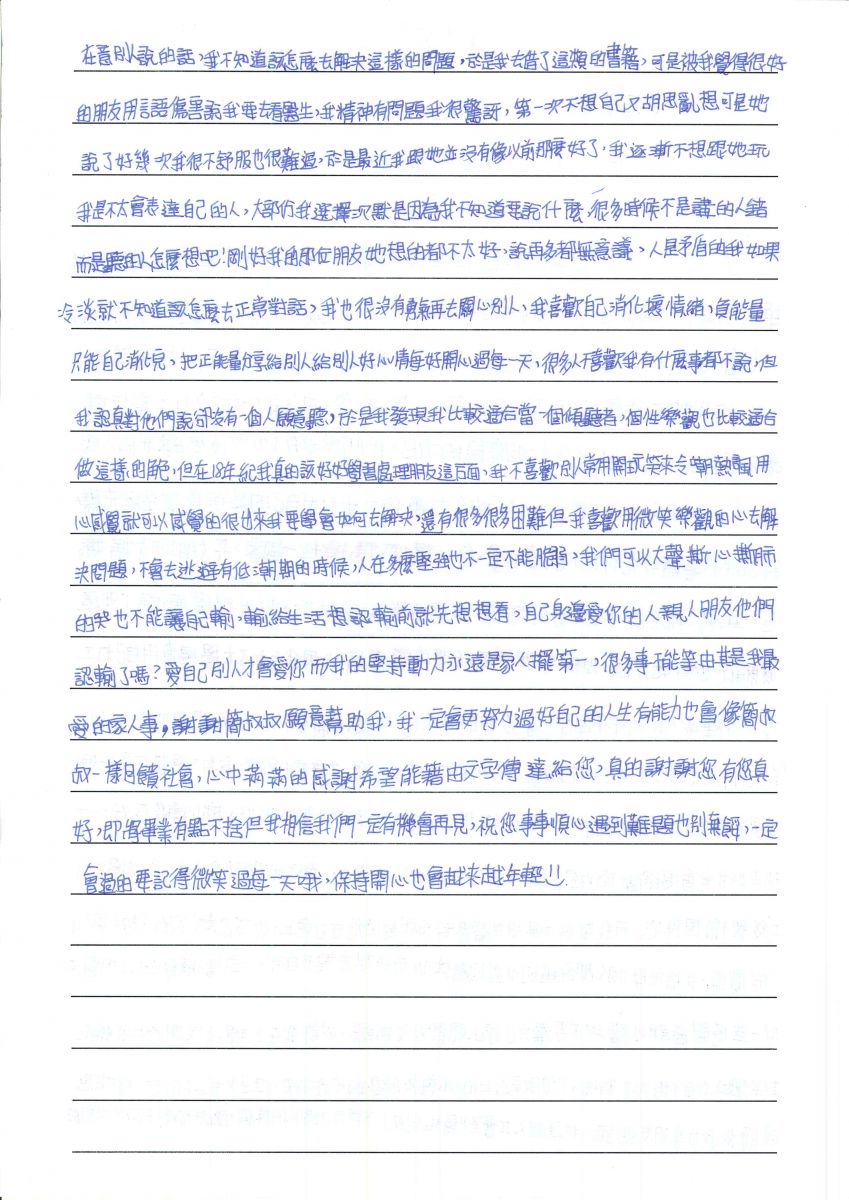 在意別人說的話，我不知道該怎麼去解決這樣的問題，於是我去借了這類的書籍，可是被我覺得很好
的朋友用言語傷害說我要去看醫生，我精神有問題我很驚訝，第一次不想自己又胡思亂想可是她
說了好幾次我很不舒服也很難過，於是最近我跟她並沒有像以前那麼好了，我逐漸不想跟她玩
我是不太會表達自己的人，大部份我選擇沉默是因為我不知道要說什麼，很多時候不是講的人錯
而是聽的人怎麼想吧！剛好我的那位朋友她想的都不太好，說再多都無意議。人是矛盾的我如果
冷淡就不知道該怎麼去正常對話，我也很沒有再去關心別人，我喜歡自己消化壞情緒，負能量
只能自己消化完，把正能量分享給別人給別人好心情每好開心過每一天，很多人不喜歡我有什麼事都不說，但
我認真對他們說卻沒有一個人願意聽，於是我發現我比較適合當一個傾聽者，個性樂觀也比較適合
做這樣的角色，但在18年紀我真的該好好學習處理朋友這方面，我不喜歡別人常用開玩笑來令嘲熱諷用
心感覺就可以感覺的很出來我要學會如何去解決，還有很多很多困難但我喜歡用微笑樂觀的心去解
決問題，不會去逃避有低潮期的時候，人在多麼堅強也不一定不能脆弱，我們可以大聲撕心撕肺
的哭也不能讓自己輸，輸給生活想認輸前就先想想看，自己身邊愛你的人親人朋友他們
認輸了嗎？愛自己別人才會愛你而我的堅持動力永遠是家人擺第一，很多事不能等尤其是我最
愛的家人事，謝謝簡叔叔願意幫助我，我一定會更努力過好自己的人生有能力也會像簡叔
叔一樣回饋社會，心中滿滿的感謝希望能藉由文字傳達給您，真的謝謝您有您真
好，即將畢業有點不捨但我相信我們一定有機會再見，祝您事事順心遇到難題也別氣餒，一定
會過的要記得微笑過每一天哦，保持開心也會越來越年輕!!